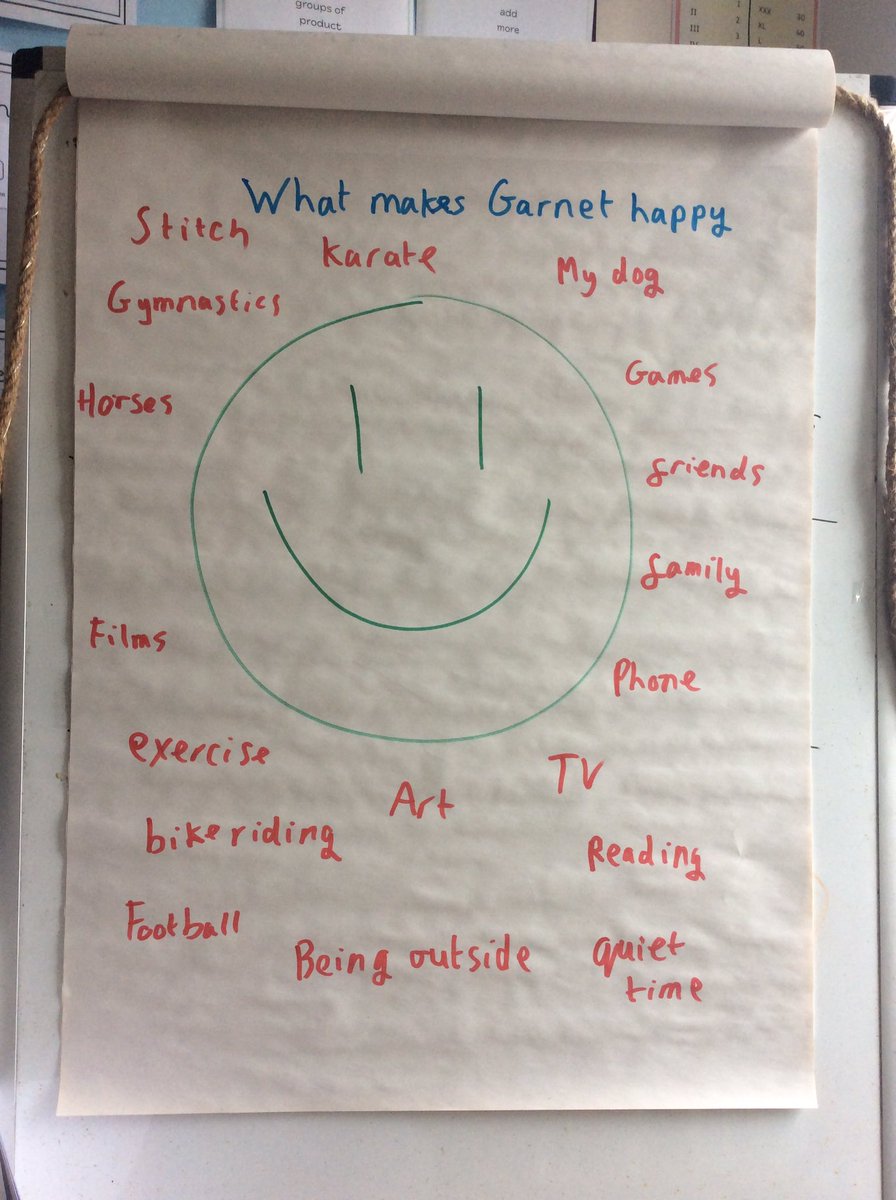 groups of
product
add
more
II
III
1
2
3
XXX
XL
L
30
40
What makes Garnet happy
Stitch
Karate
My dog
Gymnastics
Games
Horses
friends
family
Films
Phone
exercise
TV
Art
bike riding
Reading
Football
Being outside
quiet
time